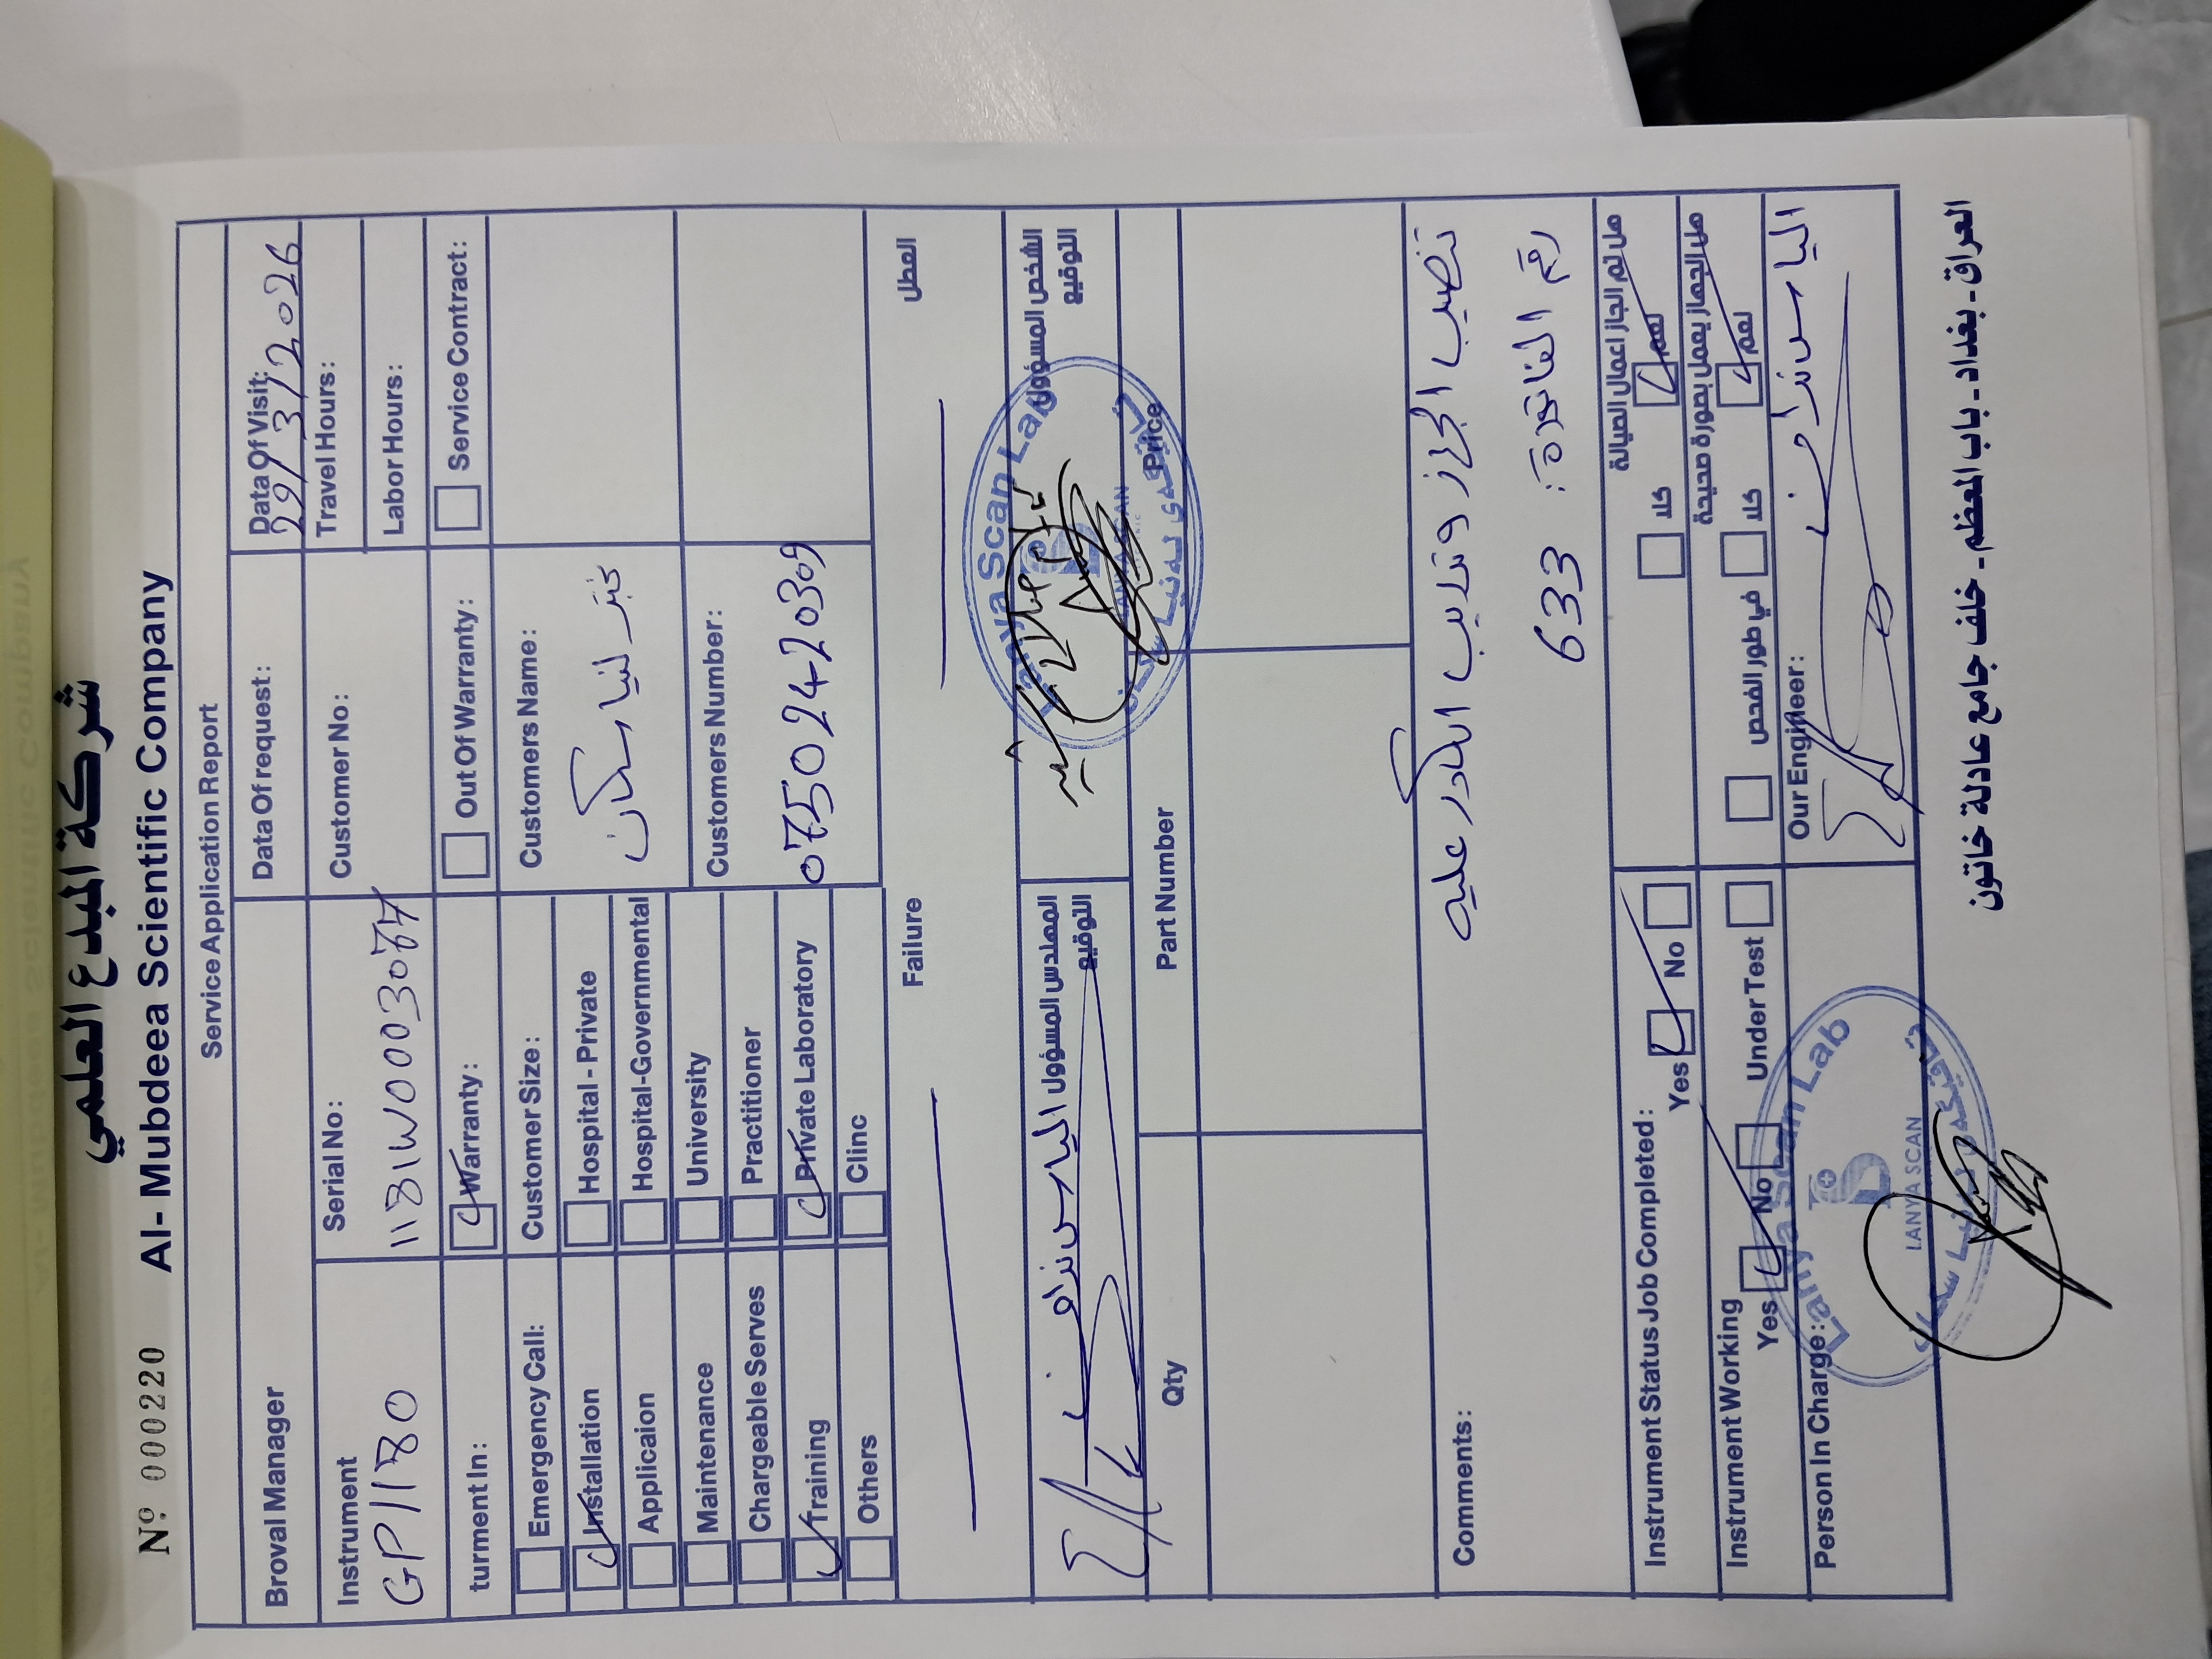 شركة المبدع العلمي
Nº 000220 Al- Mubdeea Scientific Company
Service Application Report
Broval Manager
Data Of request:
Data Of Visit:
29/3/2026
Instrument
GP1180
Serial No:
Customer No:
Travel Hours:
Labor Hours:
turment In:
Warranty:
Out Of Warranty:
Service Contract:
Emergency Call:
Installation
Applicaion
Maintenance
Chargeable Serves
Training
Others
Customer Size:
Hospital - Private
Hospital-Governmental
University
Practitioner
Private Laboratory
Clinc
Customers Name:
مختبر لنيا سكان
Customers Number:
0750 242 0309
Failure
العطل
المهندس المسؤول
التوقيع
الشخص المسؤول
التوقيع
Lanya Scan Lab
LANYA SCAN
Qty
Part Number
Price
Comments:
تنصيب الجهاز وتدريب الكادر عليه
رقم الفاتورة: 633
Instrument Status Job Completed:
Yes
No
كلا
نعم
هل تم انجاز اعمال الصيانة
Instrument Working
Yes
No
Under Test
في طور الفحص
كلا
نعم
هل الجهاز يعمل بصورة صحيحة
Person In Charge:
Our Engineer:
Lanya Scan Lab
LANYA SCAN
العراق - بغداد - باب المعظم - خلف جامع عادلة خاتون